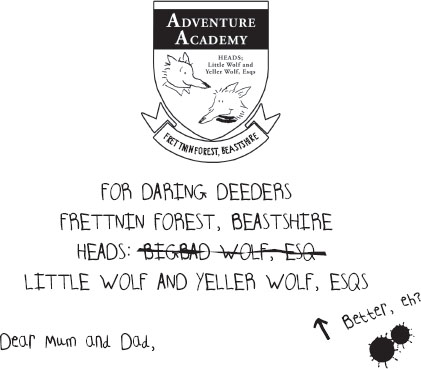 ADVENTURE
ACADEMY
HEADS;
Little Wolf and
Yeller Wolf, Esqs
FRETTNIN FOREST, BEASTSHIRE
FOR DARING DEEDERS
FRETTNIN FOREST, BEASTSHIRE
HEADS: BIGBAD WOLF, ESQ
LITTLE WOLF AND YELLER WOLF, ESQS
Better, eh?
Dear Mum and Dad,